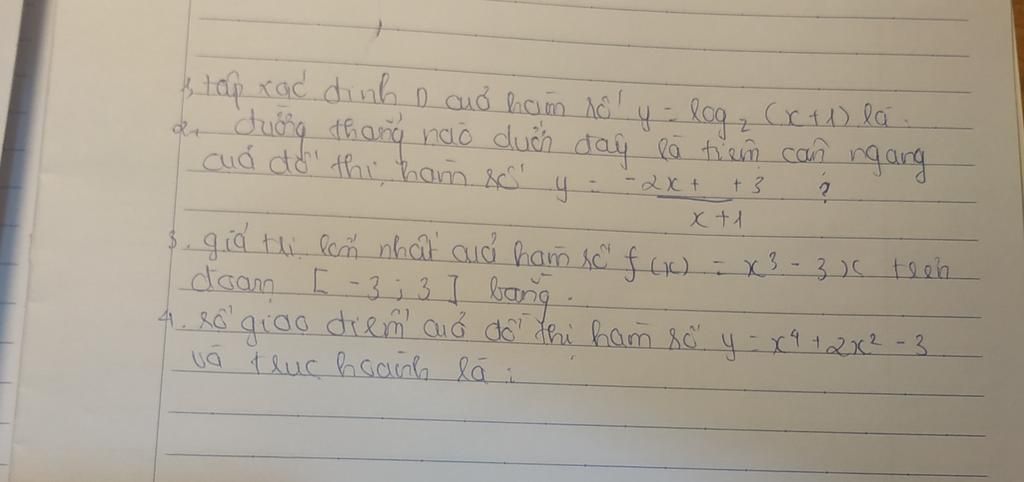 1, tập xác định D cuả hàm số y = log₂ (x+1) là.
2, đường thẳng nào dưới đây là tiệm cận ngang
cuả đồ thị hàm số y = -2x + +3 / x+1 ?
3. giá trị lớn nhất cuả hàm số f(x) = x³ - 3x trên
đoạn [-3; 3] bằng.
4. số giao điểm cuả đồ thị hàm số y = x⁴ + 2x² - 3
và trục hoành là :